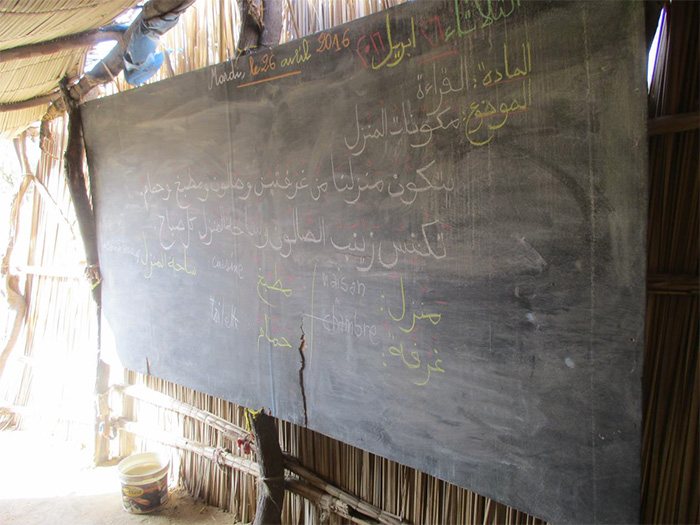 Mardi, le 26 avril 2016 الثلاثاء ٢٦ ابريل ٢٠١٦
المادة: القراءة
الموضوع: مكونات المنزل
يتكون منزلنا من غرفتين وصالون ومطبخ وحمام.
تكنس زينب الصالون وساحة المنزل كل صباح
منزل: maison مطبخ cuisine ساحة المنزل
غرفة: chambre حمام toilett